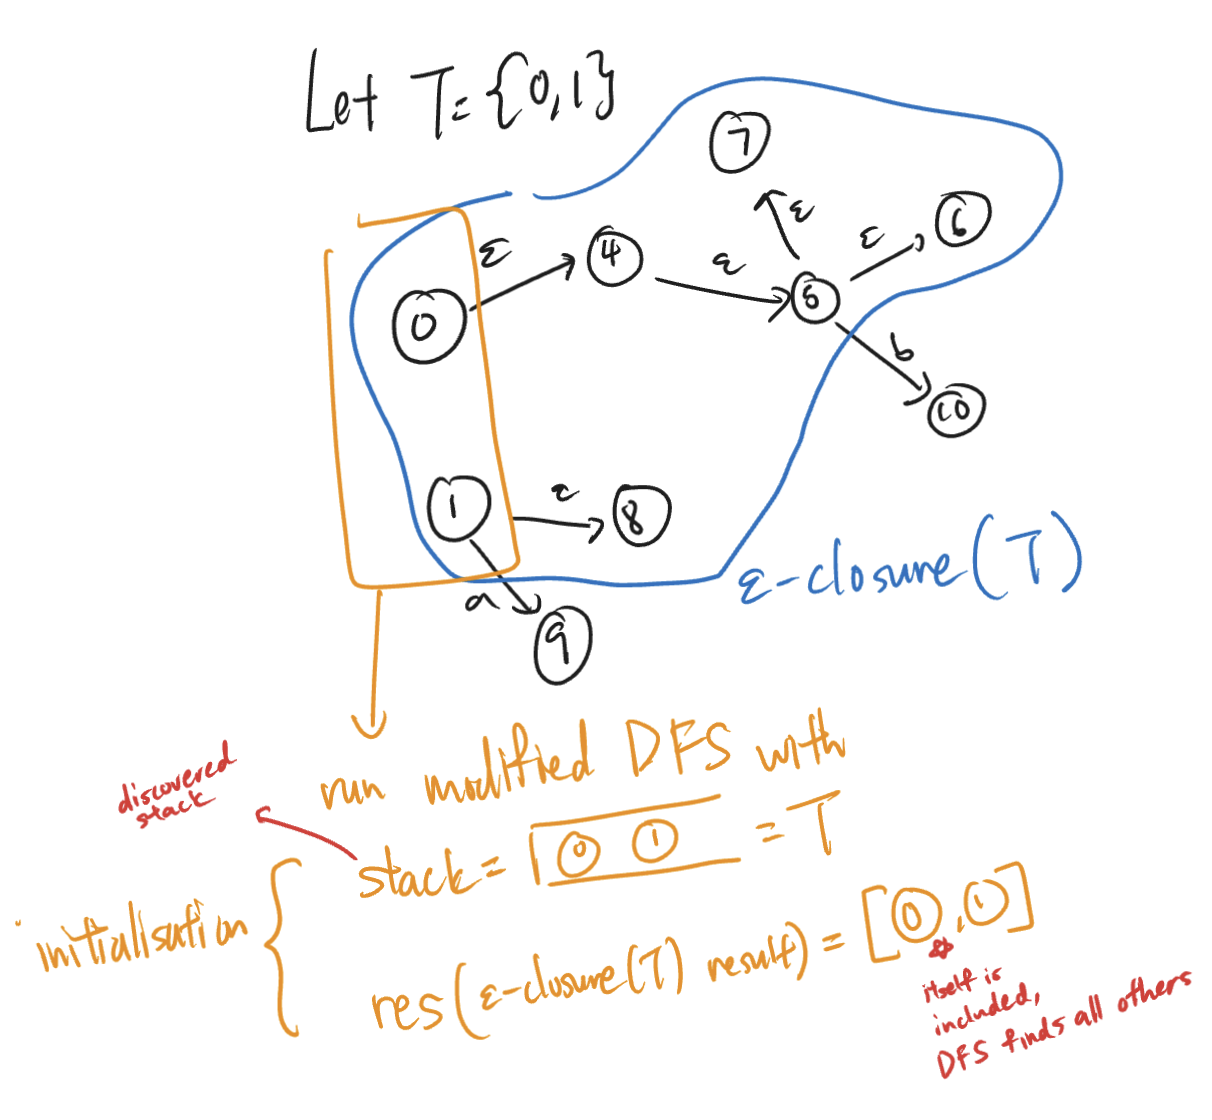 Let T = {0,1}
7
ε
6
ε
4
ε
ε
5
0
b
10
1
ε
8
ε-closure(T)
a
9
run modified DFS with
discovered
stack
stack = 0 1 = T
initialisation
res(ε-closure(T) result) = [0,1]
itself is
included,
DFS finds all others